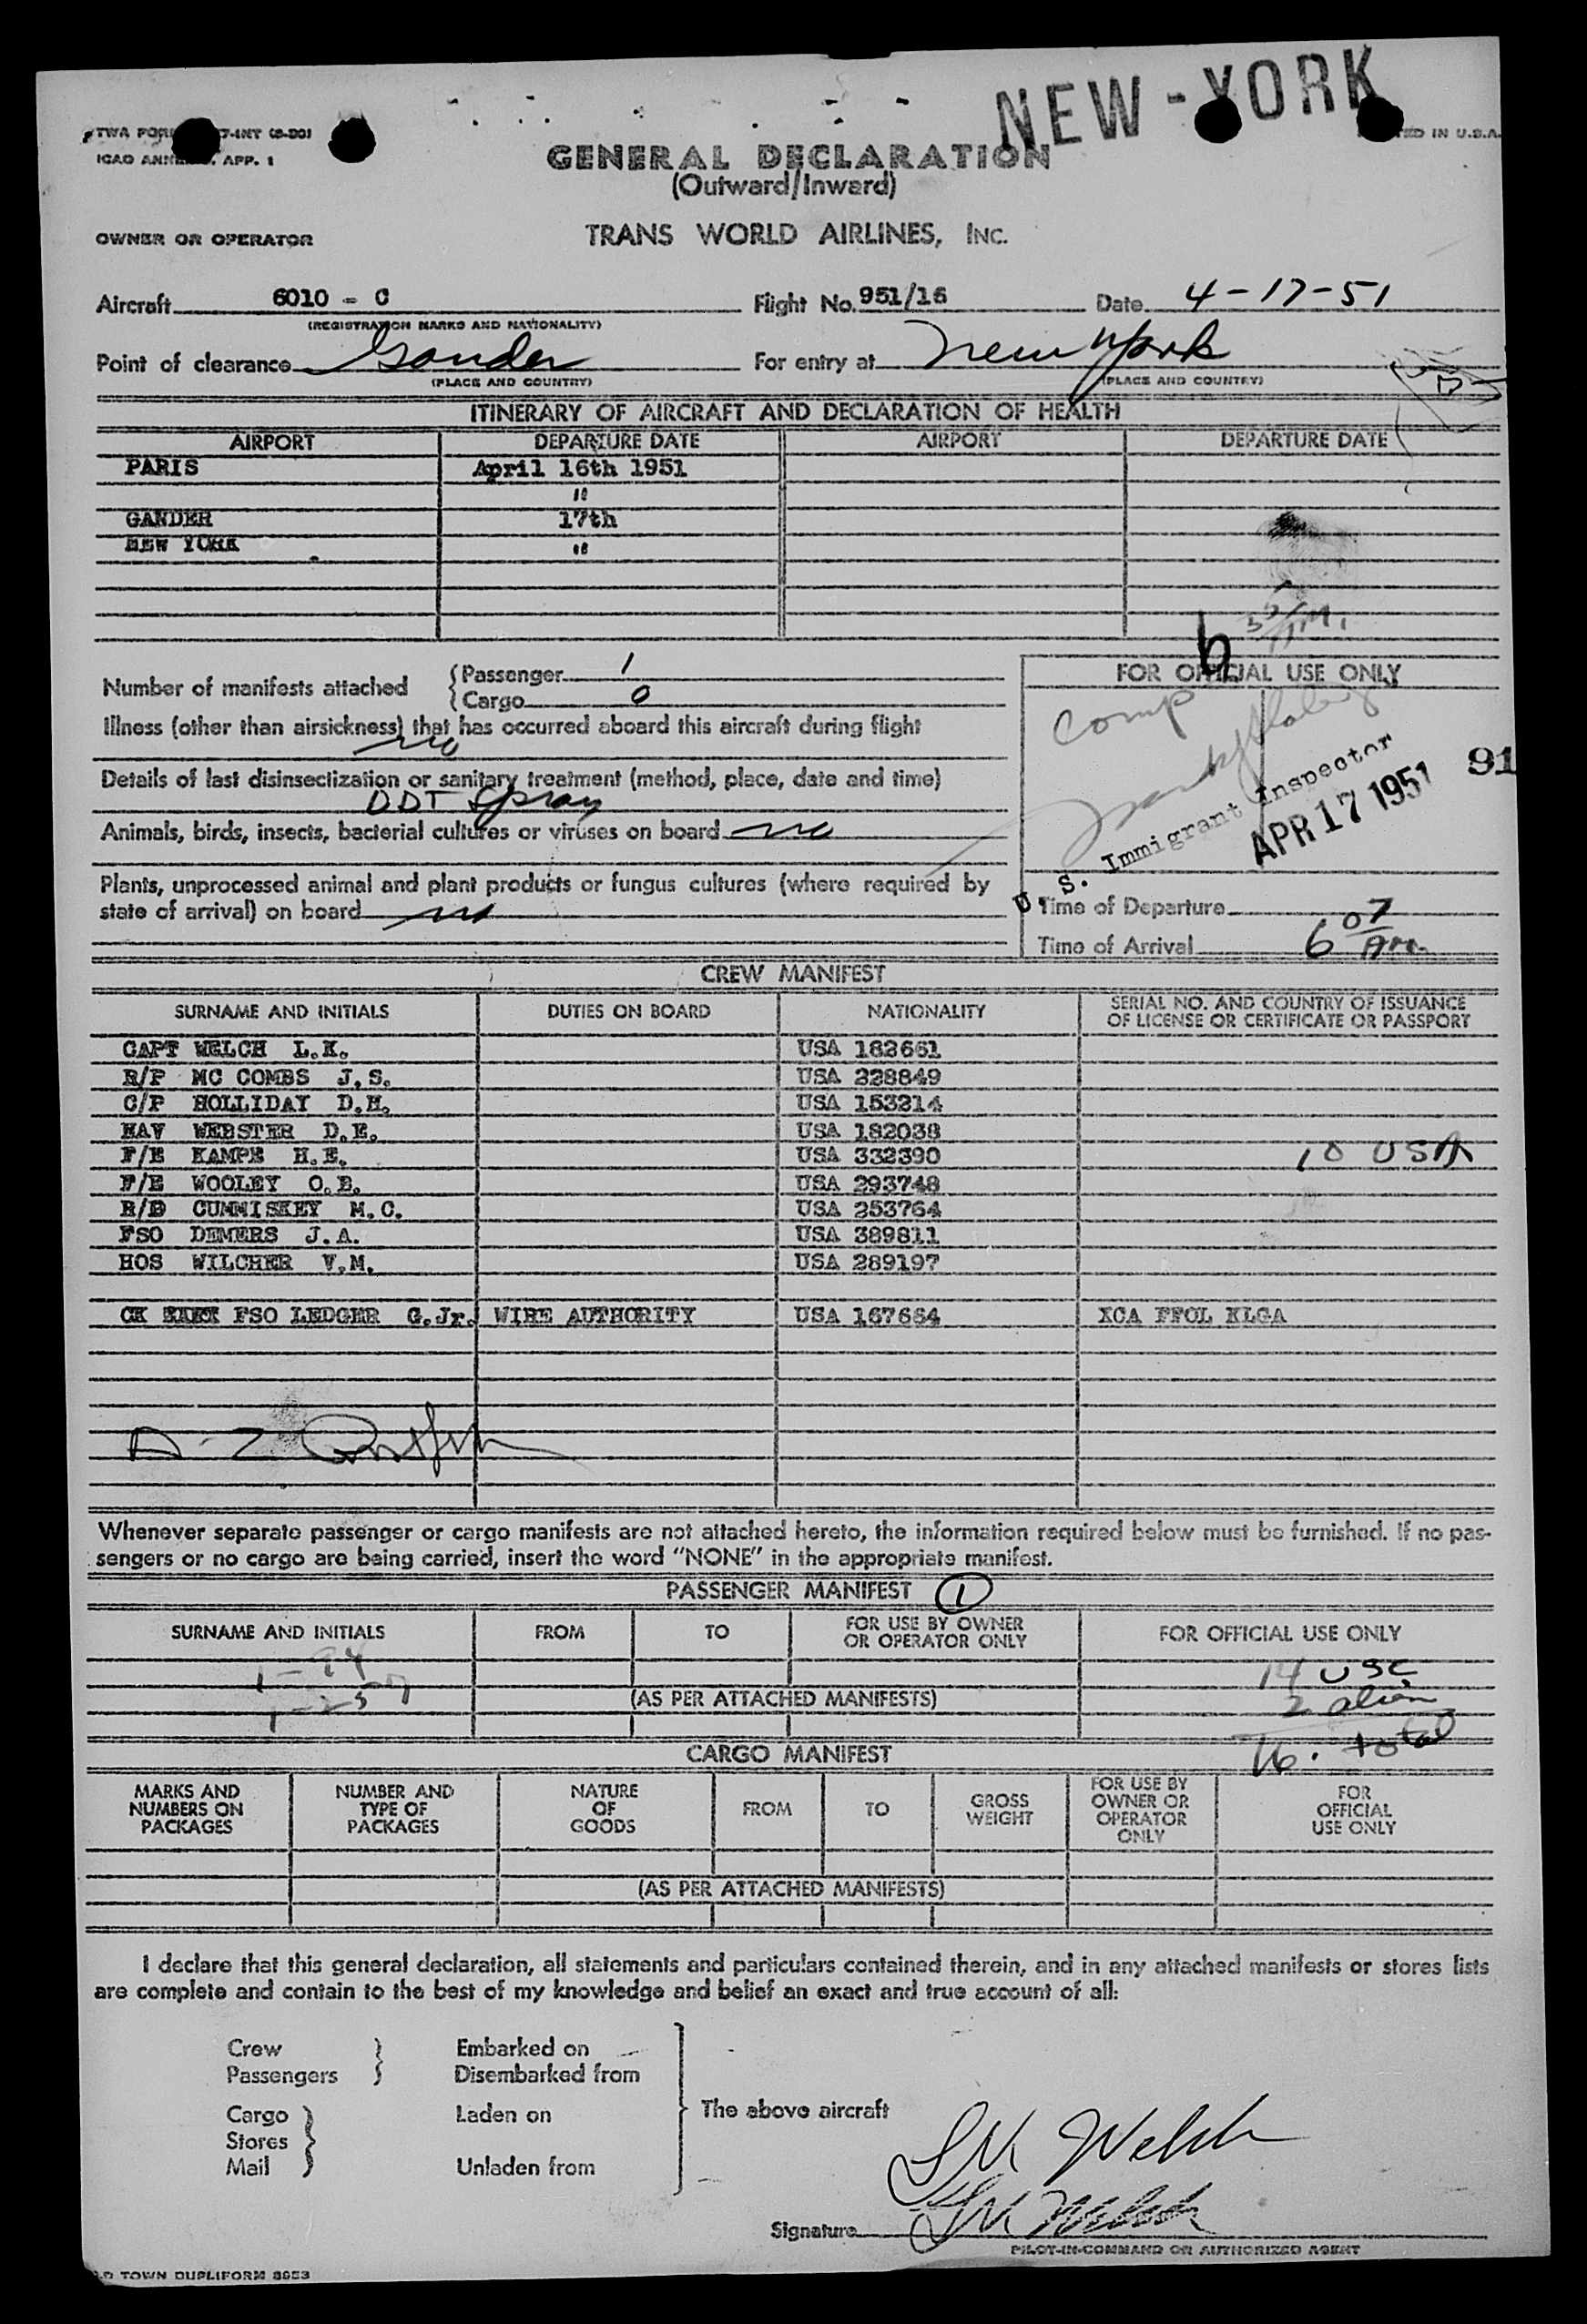 NEW-YORK
GENERAL DECLARATION
(Outward/Inward)
OWNER OR OPERATOR TRANS WORLD AIRLINES, INC.
Aircraft 6010 - C Flight No. 951/16 Date 4-17-51
(REGISTRATION MARKS AND NATIONALITY)
Point of clearance Gander For entry at New York
(PLACE AND COUNTRY) (PLACE AND COUNTRY)
ITINERARY OF AIRCRAFT AND DECLARATION OF HEALTH
AIRPORT DEPARTURE DATE AIRPORT DEPARTURE DATE
PARIS April 16th 1951
"
GANDER 17th
NEW YORK "
Number of manifests attached Passenger 1
Cargo 0
FOR OFFICIAL USE ONLY
Comp
Illness (other than airsickness) that has occurred aboard this aircraft during flight
no
Details of last disinsectization or sanitary treatment (method, place, date and time)
DDT Spray
91
U.S. Immigrant Inspector
APR 17 1951
Animals, birds, insects, bacterial cultures or viruses on board no
Plants, unprocessed animal and plant products or fungus cultures (where required by
state of arrival) on board no
Time of Departure
Time of Arrival 6 07 AM
CREW MANIFEST
SURNAME AND INITIALS DUTIES ON BOARD NATIONALITY SERIAL NO. AND COUNTRY OF ISSUANCE
OF LICENSE OR CERTIFICATE OR PASSPORT
CAPT WELCH L.K. USA 182661
R/P MC COMBS J.S. USA 228849
C/P HOLLIDAY D.H. USA 153214
NAV WEBSTER D.E. USA 182038
F/E KAMPE H.E. USA 332390 10 USA
F/E WOOLEY O.B. USA 293748
R/O CUMMISKEY M.C. USA 253764
FSO DEMERS J.A. USA 389811
HOS WILCHER V.M. USA 289197
CK FSO LEDGER G.Jr. WIRE AUTHORITY USA 167664 XCA FFOL KLGA
Whenever separate passenger or cargo manifests are not attached hereto, the information required below must be furnished. If no pas-
sengers or no cargo are being carried, insert the word "NONE" in the appropriate manifest.
PASSENGER MANIFEST 1
SURNAME AND INITIALS FROM TO FOR USE BY OWNER
OR OPERATOR ONLY FOR OFFICIAL USE ONLY
1-94 14 USC
1-257 (AS PER ATTACHED MANIFESTS) 2 alien
16. total
CARGO MANIFEST
MARKS AND
NUMBERS ON
PACKAGES
NUMBER AND
TYPE OF
PACKAGES
NATURE
OF
GOODS
FROM
TO
GROSS
WEIGHT
FOR USE BY
OWNER OR
OPERATOR
ONLY
FOR
OFFICIAL
USE ONLY
(AS PER ATTACHED MANIFESTS)
I declare that this general declaration, all statements and particulars contained therein, and in any attached manifests or stores lists
are complete and contain to the best of my knowledge and belief an exact and true account of all:
Crew Embarked on
Passengers Disembarked from
The above aircraft
Cargo Laden on
Stores
Mail Unladen from
LK Welch
Signature LK Welch
PILOT-IN-COMMAND OR AUTHORIZED AGENT
TOWN DUPLIFORM 8953